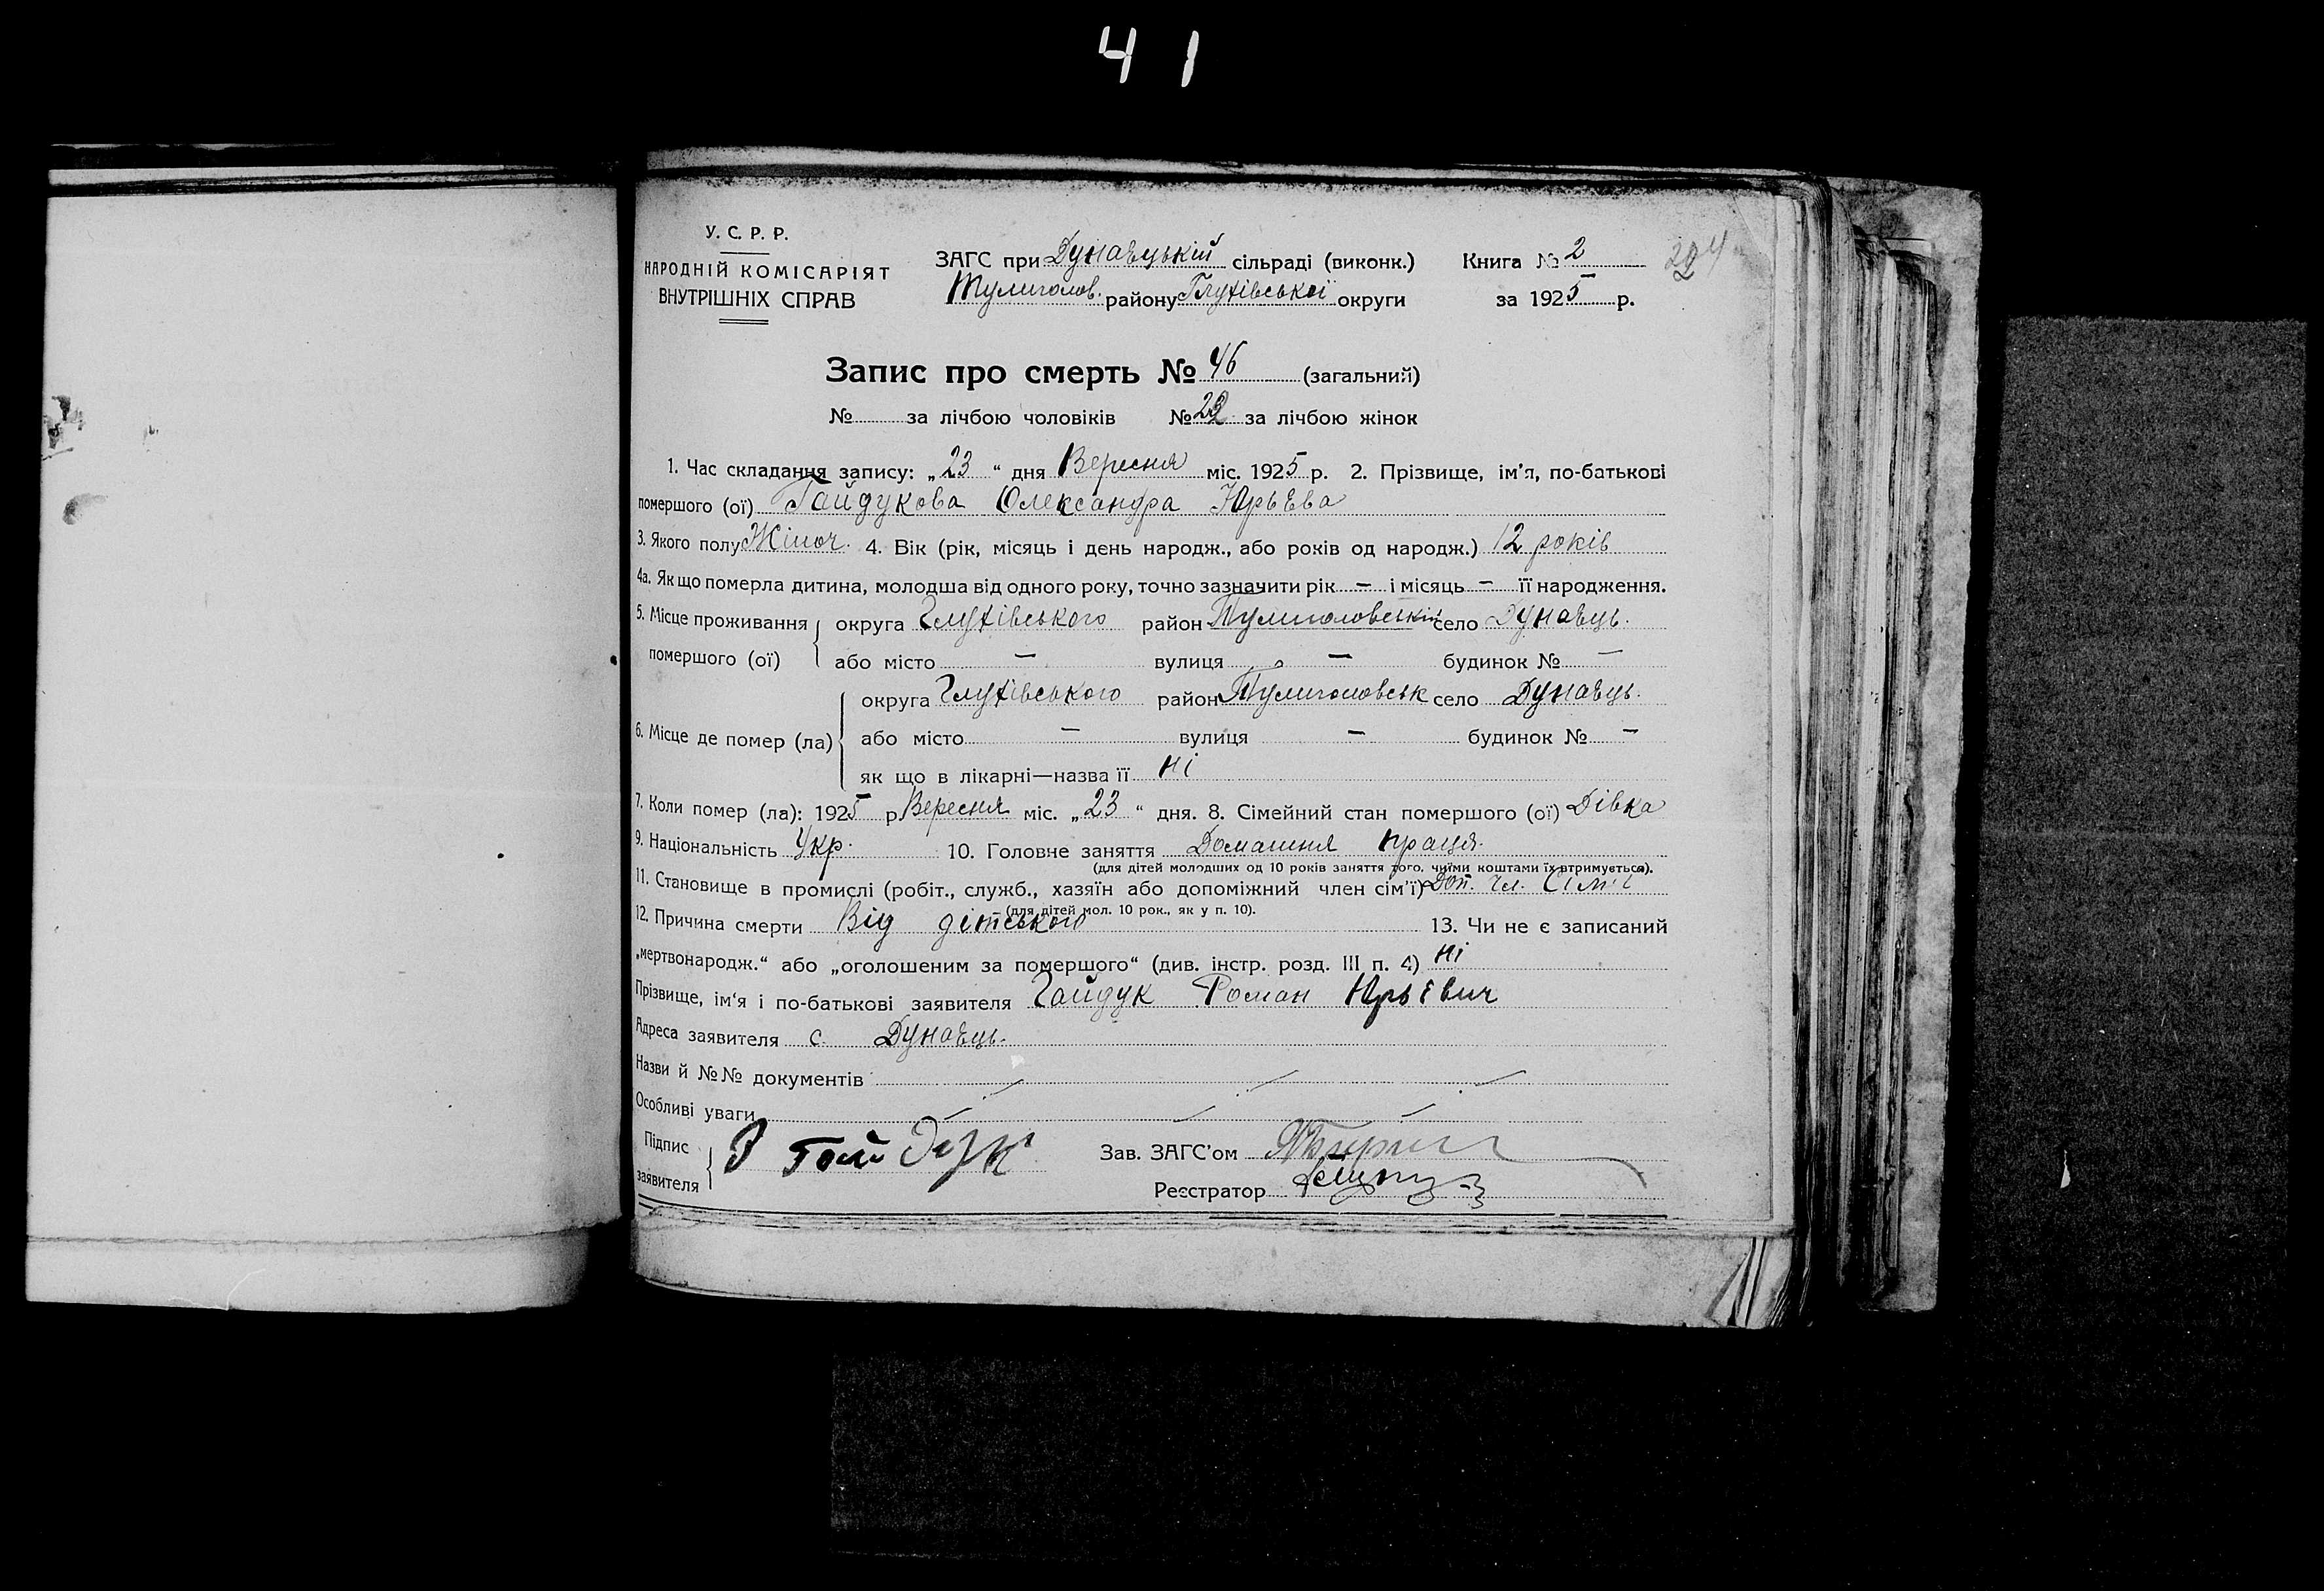 41
У. С. Р. Р.
НАРОДНІЙ КОМІСАРІЯТ
ВНУТРІШНІХ СПРАВ
ЗАГС при Дунавецькій сільраді (виконк.) Книга № 2
Тулиголов. району Глухівської округи за 1925 р.
Запис про смерть № 46 (загальний)
№ за лічбою чоловіків № за лічбою жінок
1. Час складання запису: „23“ дня Вересня міс. 1925 р. 2. Прізвище, ім'я, по-батькові
помершого (ої) Гайдукова Олександра Юрьева
3. Якого полу Жіноч. 4. Вік (рік, місяць і день народж., або років од народж.) 12 років
4а. Як що померла дитина, молодша від одного року, точно зазначити рік — і місяць — її народження.
5. Місце проживання помершого (ої) округа Глухівського район Тулиголовський село Дунавець.
або місто — вулиця — будинок № —
6. Місце де помер (ла) округа Глухівського район Тулиголовськ село Дунавець.
або місто — вулиця — будинок № —
як що в лікарні—назва її ні
7. Коли помер (ла): 1925 р. Вересня міс. „23“ дня. 8. Сімейний стан помершого (ої) Дівка
9. Національність Укр. 10. Головне заняття Домашня праця.
(для дітей молодших од 10 років заняття того, чиїми коштами їх втримується).
11. Становище в промислі (робіт., служб., хазяїн або допоміжний член сім'ї) Доп. чл. Сім'ї
(для дітей мол. 10 рок., як у п. 10).
12. Причина смерти Від дітського 13. Чи не є записаний
„мертвонародж.“ або „оголошеним за помершого“ (див. інстр. розд. III п. 4) ні
Прізвище, ім'я і по-батькові заявителя Гайдук Роман Юрьевич
Адреса заявителя с. Дунавець.
Назви й №№ документів
Особливі уваги
Підпис заявителя Р Гайдук Зав. ЗАГС'ом
Реєстратор